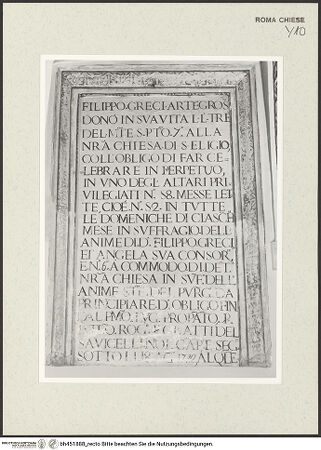 ROMA CHIESE
Y10
FILIPPO GRECI ARTEGROS
DONÒ IN SVA VITA L.L. TRE
DEL M.TE S. P.TO 7.A ALLA
NRÀ CHIESA DI S ELIGIO,
COLL'OBLIGO DI FAR CE=
LEBRARE IN PERPETUO,
IN VNO DEGL ALTARI PRI
VILEGIATI N.º 58. MESSE LET
TE, CIOÈ N.º 52. IN TVTTE
LE DOMENICHE DI CIASCH
MESE IN SVFFRAGIO DELL
ANIME DI D.º FILIPPO GRECI
ET ANGELA SVA CONSOR.
E N.º 6. A COMMODO DI DET.
NRÀ CHIESA IN SVF. DELL
ANIME DEL PVRG. DA
PRINCIPIARE D'OBLIGO
ROG. GATTI DEL
SAVICELLI NOT. CAP. SEG.
SOTTO LI
bh451888_recto Bitte beachten Sie die Nutzungsbedingungen.